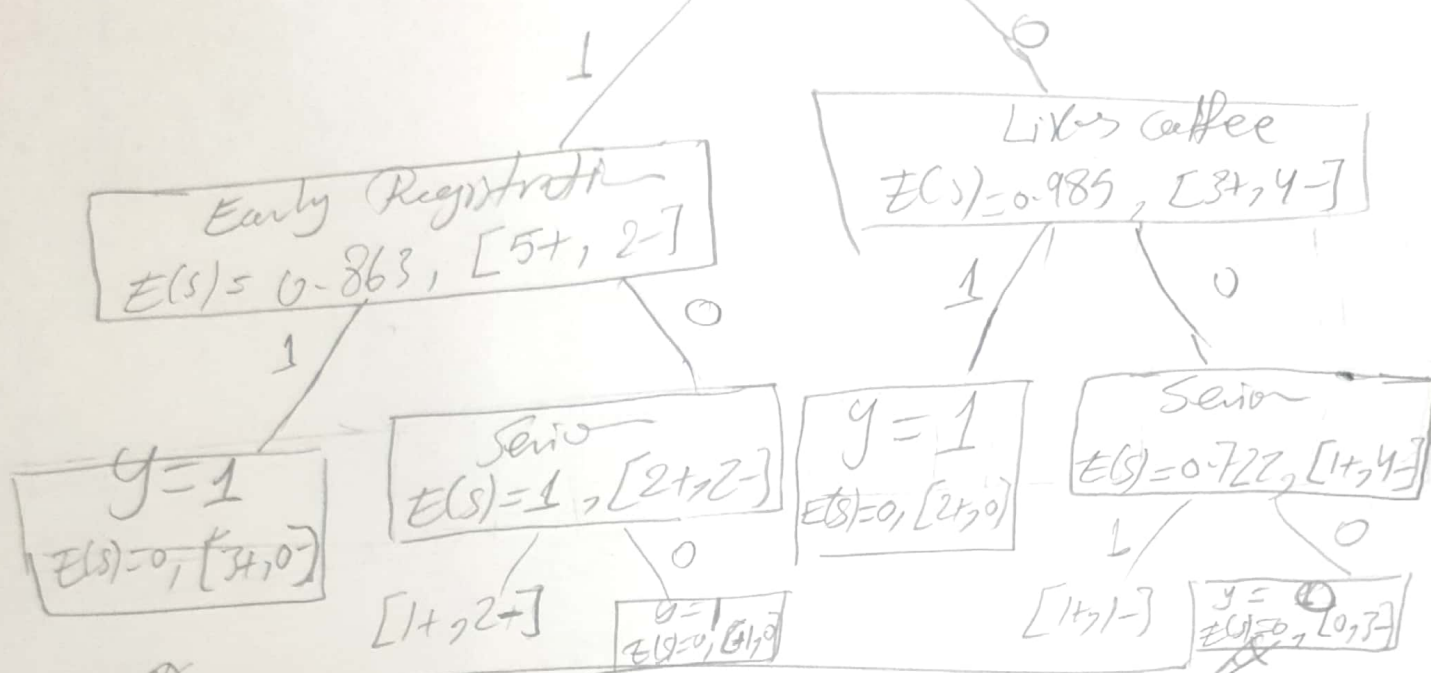 1
0
Early Registration
E(s)= 0.863, [5+, 2-]
Likes Coffee
E(s)=0.985, [3+, 4-]
1
0
1
0
y=1
E(s)=0, [3+, 0-]
Senior
E(s)=1, [2+, 2-]
y=1
E(s)=0, [2+, 0]
Senior
E(s)=0.722, [1+, 4-]
1
0
0
[1+, 2-]
y=1
E(s)=0, [+1, 0]
[1+, 1-]
y= 0
E(s)=0, [0, 3-]